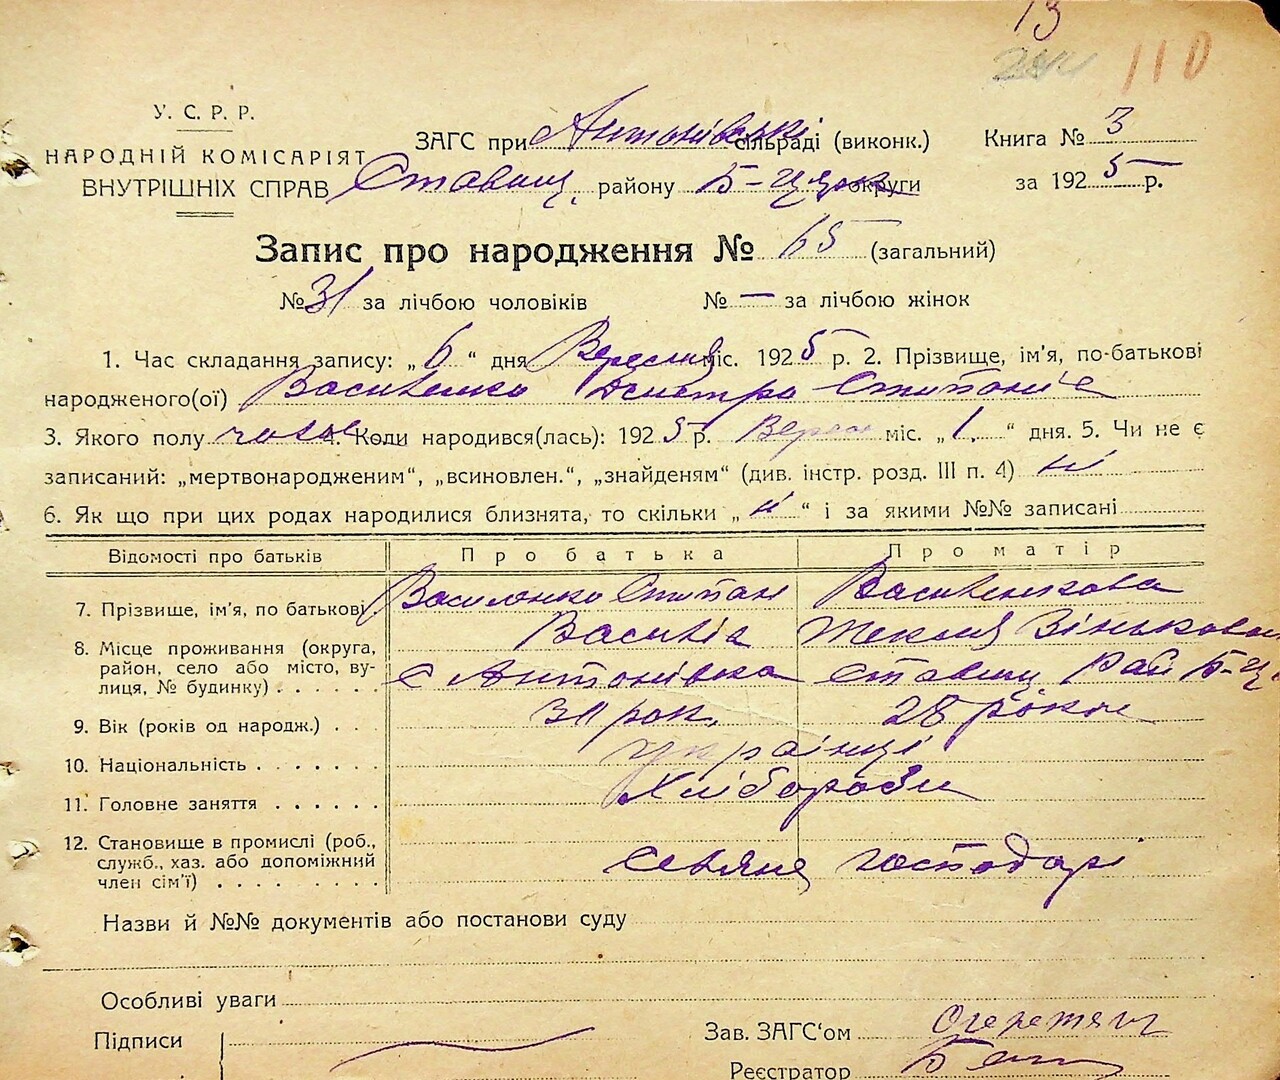 13
110
У. С. Р. Р.
НАРОДНІЙ КОМІСАРІЯТ
ВНУТРІШНІХ СПРАВ
ЗАГС при Антонівські сільраді (виконк.)
Ставищ. району Б-Ц округи
Книга № 3
за 1925 р.
Запис про народження № 65 (загальний)
№ 31 за лічбою чоловіків № — за лічбою жінок
1. Час складання запису: „6“ дня Вересня міс. 1925 р. 2. Прізвище, ім'я, по-батькові
народженого(ої) Василенко Дмитро Стипанів
3. Якого полу чолов 4. Коли народився(лась): 1925 р. Верес міс. „1“ дня. 5. Чи не є
записаний: „мертвонародженим“, „всиновлен.“, „знайденям“ (див. інстр. розд. III п. 4) ні
6. Як що при цих родах народилися близнята, то скільки „н“ і за якими №№ записані
Відомості про батьків Про батька Про матір
7. Прізвище, ім'я, по батькові Василенко Стипан Василенкова
Василів Текля Зіньковна
8. Місце проживання (округа, район, село або місто, вулиця, № будинку) с Антонівка Ставищ Рай Б-Ц
9. Вік (років од народж.) 31 рок. 28 роков
10. Національність українці
11. Головне заняття Хлібороби
12. Становище в промислі (роб., служб., хаз. або допоміжний член сім'ї) господарі
Назви й №№ документів або постанови суду
Особливі уваги
Підписи
Зав. ЗАГС'ом
Реєстратор